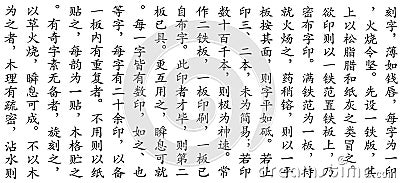 刻字，薄如钱唇，每字为一印
，火烧令坚。先设一铁版，其
上以松脂腊和纸灰之类冒之。
欲印则以一铁范置铁板上，乃
密布字印。满铁范为一板，持
就火炀之，药稍镕，则以一平
板按其面，则字平如砥。若止
印三 二本，未为简易；若印
数十百千本，则极为神速。常
作二铁板，一板印刷，一板已
自布字。此印者才毕，则第二
板已具。更互用之，瞬息可就
。每一字皆有数印，如之 也
等字，每字有二十余印，以备
一板内有重复者。不用则以纸
贴之，每韵为一贴，木格贮之
。有奇字素无备者，旋刻之，
以草火烧，瞬息可成。不以木
为之者，木理有疏密，沾水则